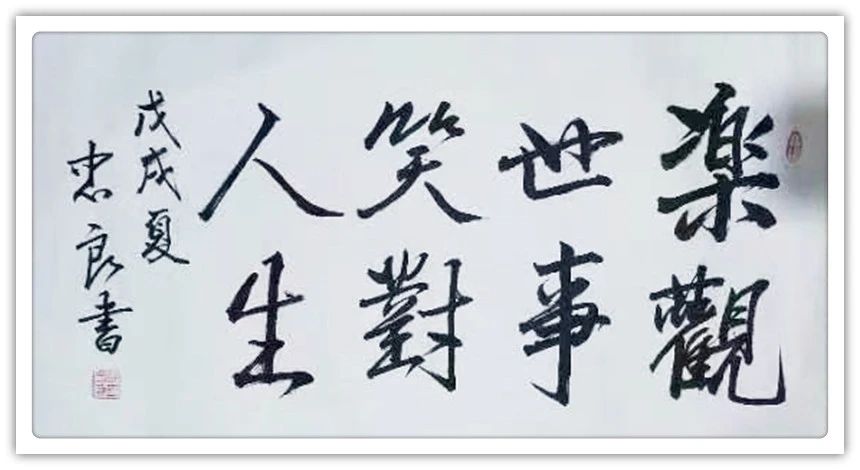 楽觀
世事
笑對
人生
戊戌夏
忠良書